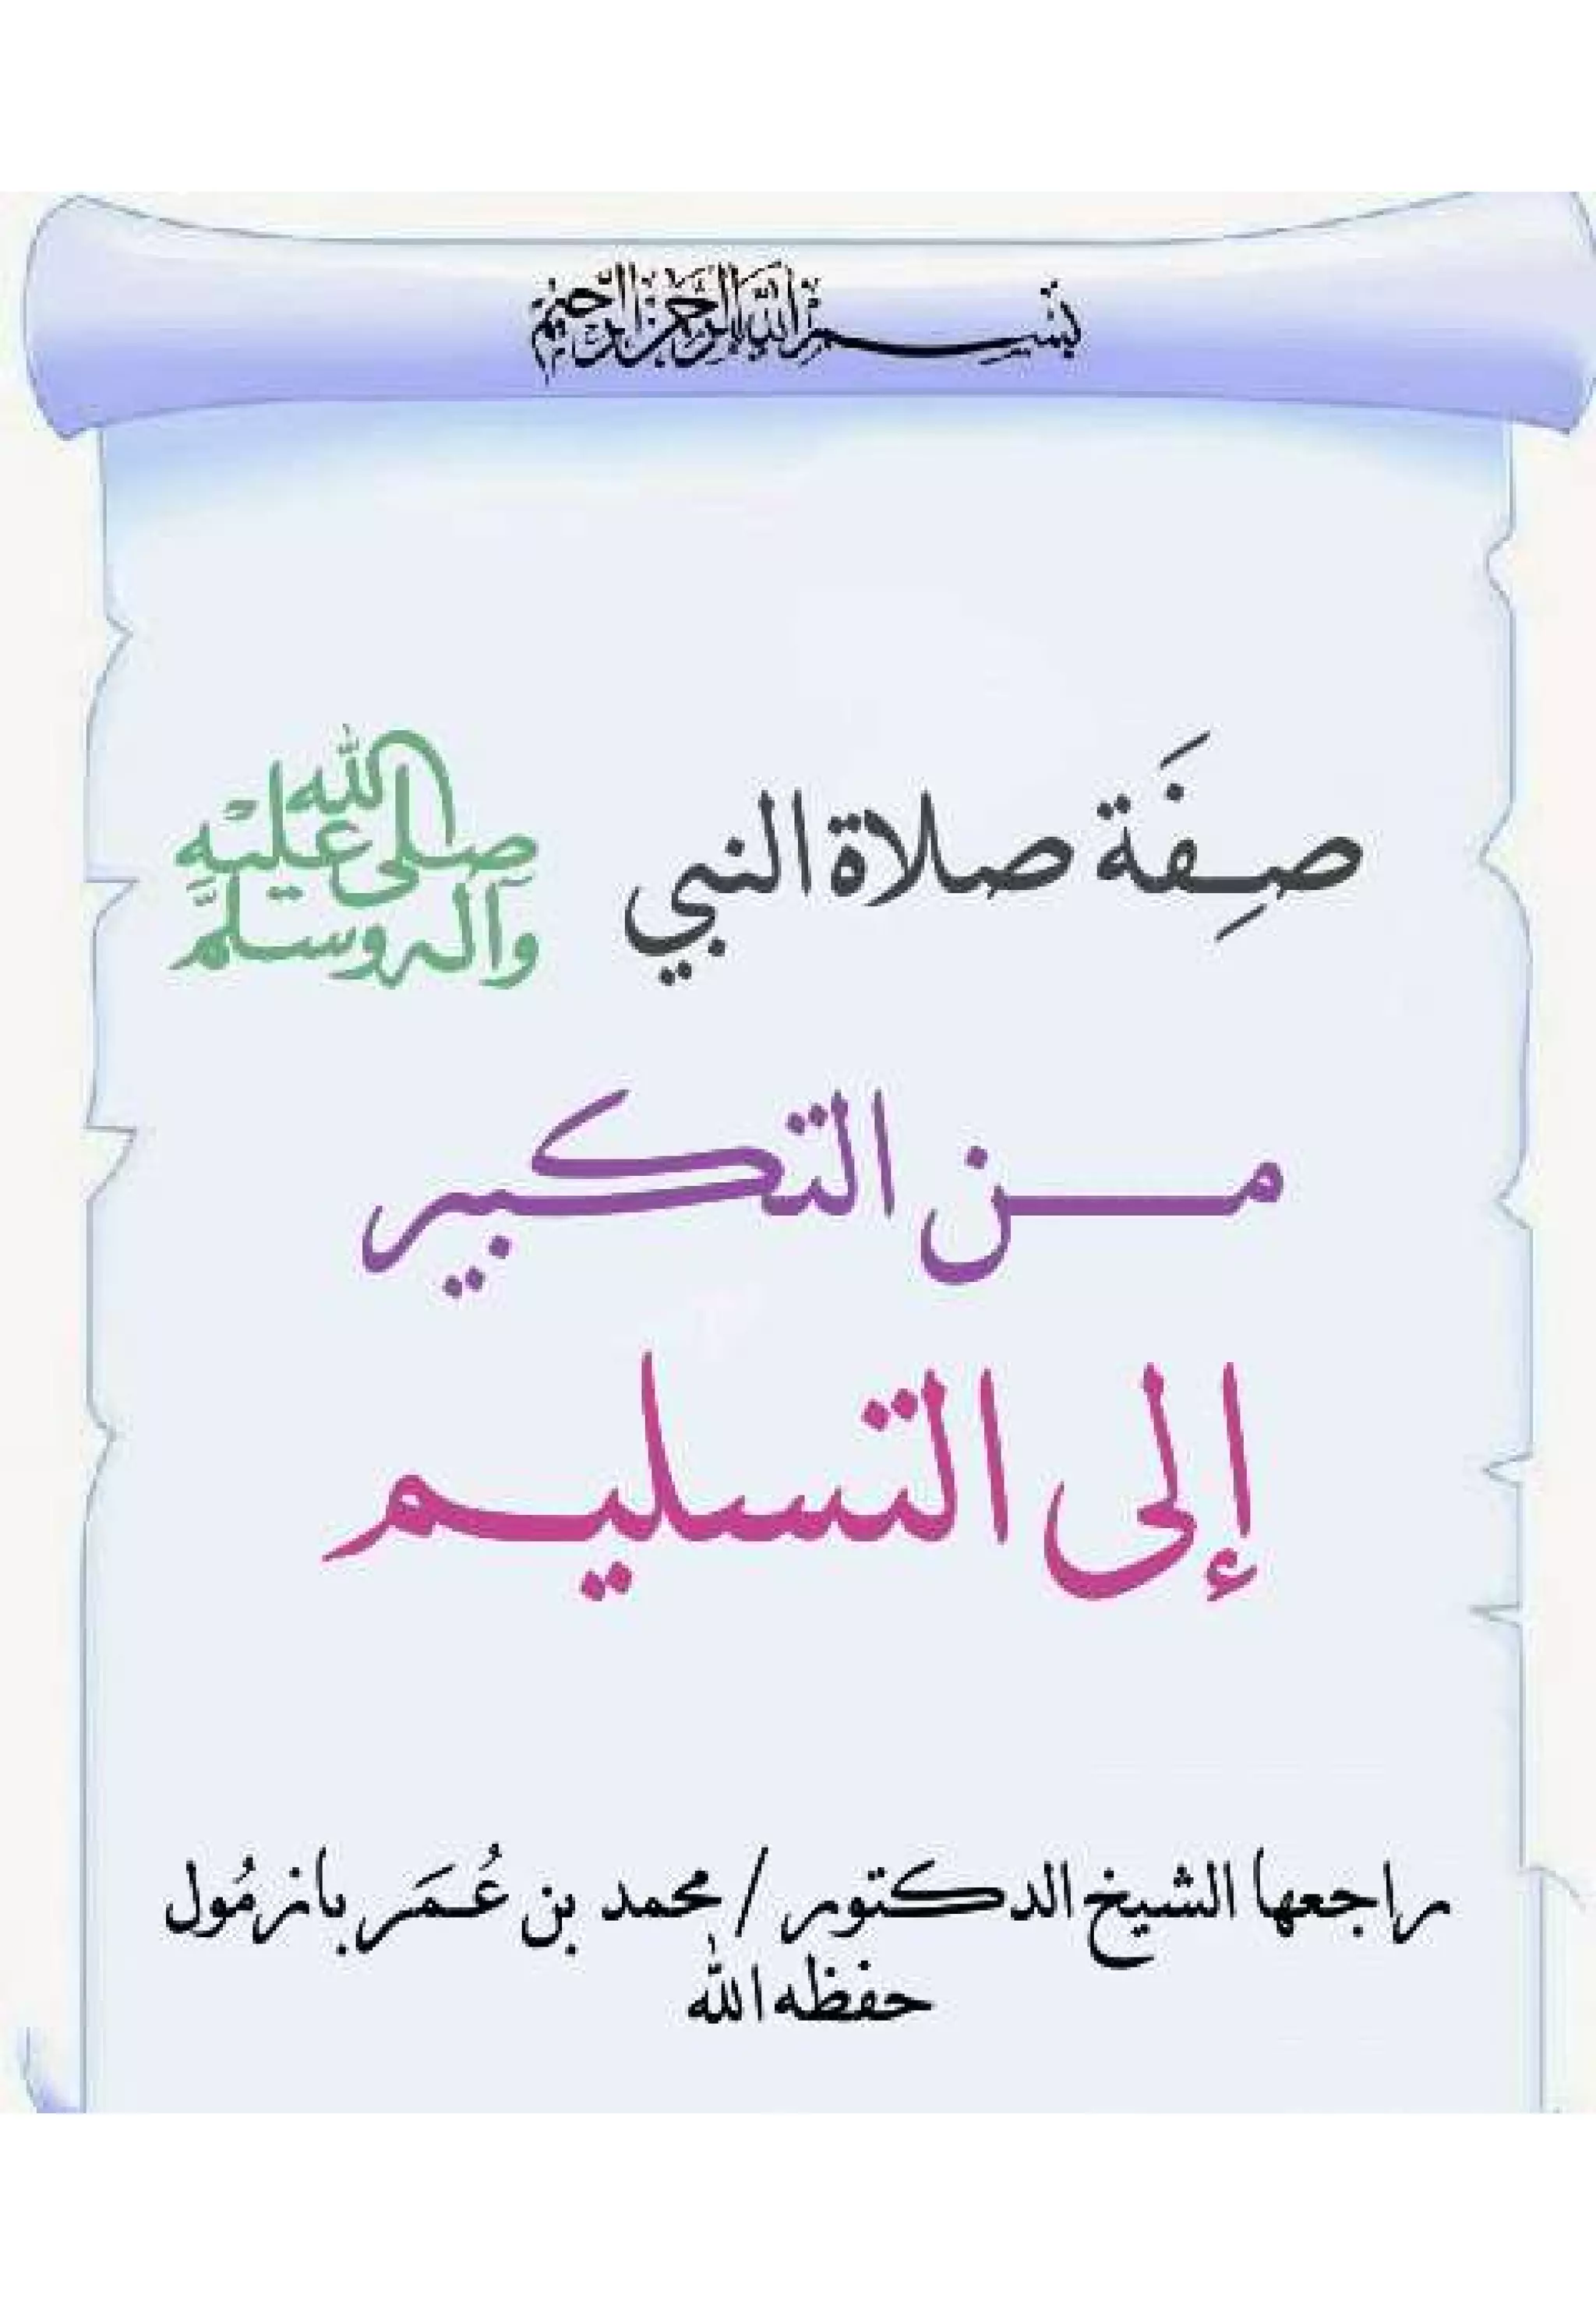 بسم الله الرحمن الرحيم
صِفَة صلاة النبي صلى الله عليه وآله وسلم
من التكبير
إلى التسليم
راجعها الشيخ الدكتور / محمد بن عُمَر بازمُول
حفظه الله